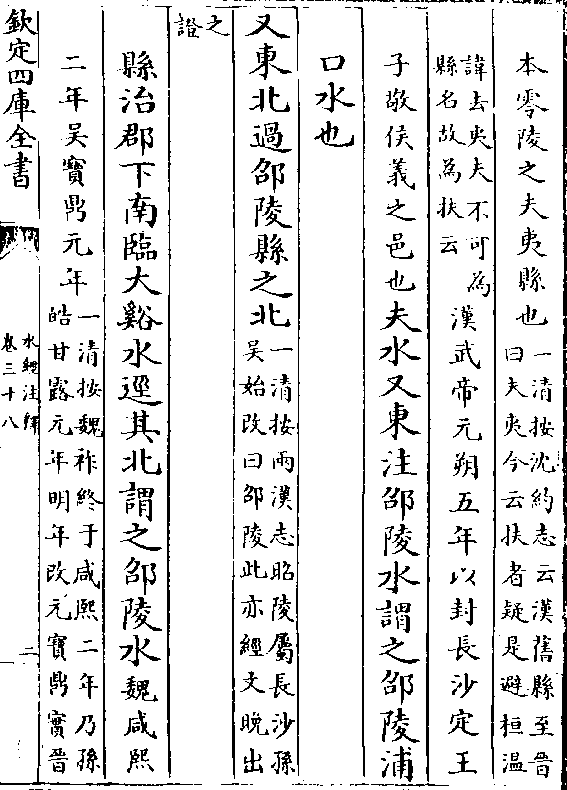 本零陵之夫夷縣也一清按沈約志云漢舊縣至晉
曰夫夷今云扶者疑是避桓温
諱去夷夫不可為
縣名故為扶云漢武帝元朔五年以封長沙定王
子敬侯義之邑也夫水又東注邵陵水謂之邵陵浦
口水也
又東北過邵陵縣之北一清按兩漢志昭陵屬長沙孫
吴始改曰邵陵此亦經文晚出
之
證
縣治郡下南臨大谿水逕其北謂之邵陵水魏咸熙
二年吴寶鼎元年一清按魏祚終于咸熙二年乃孫
皓甘露元年明年改元寶鼎實晉
欽定四庫全書
水經注釋
卷三十八
二